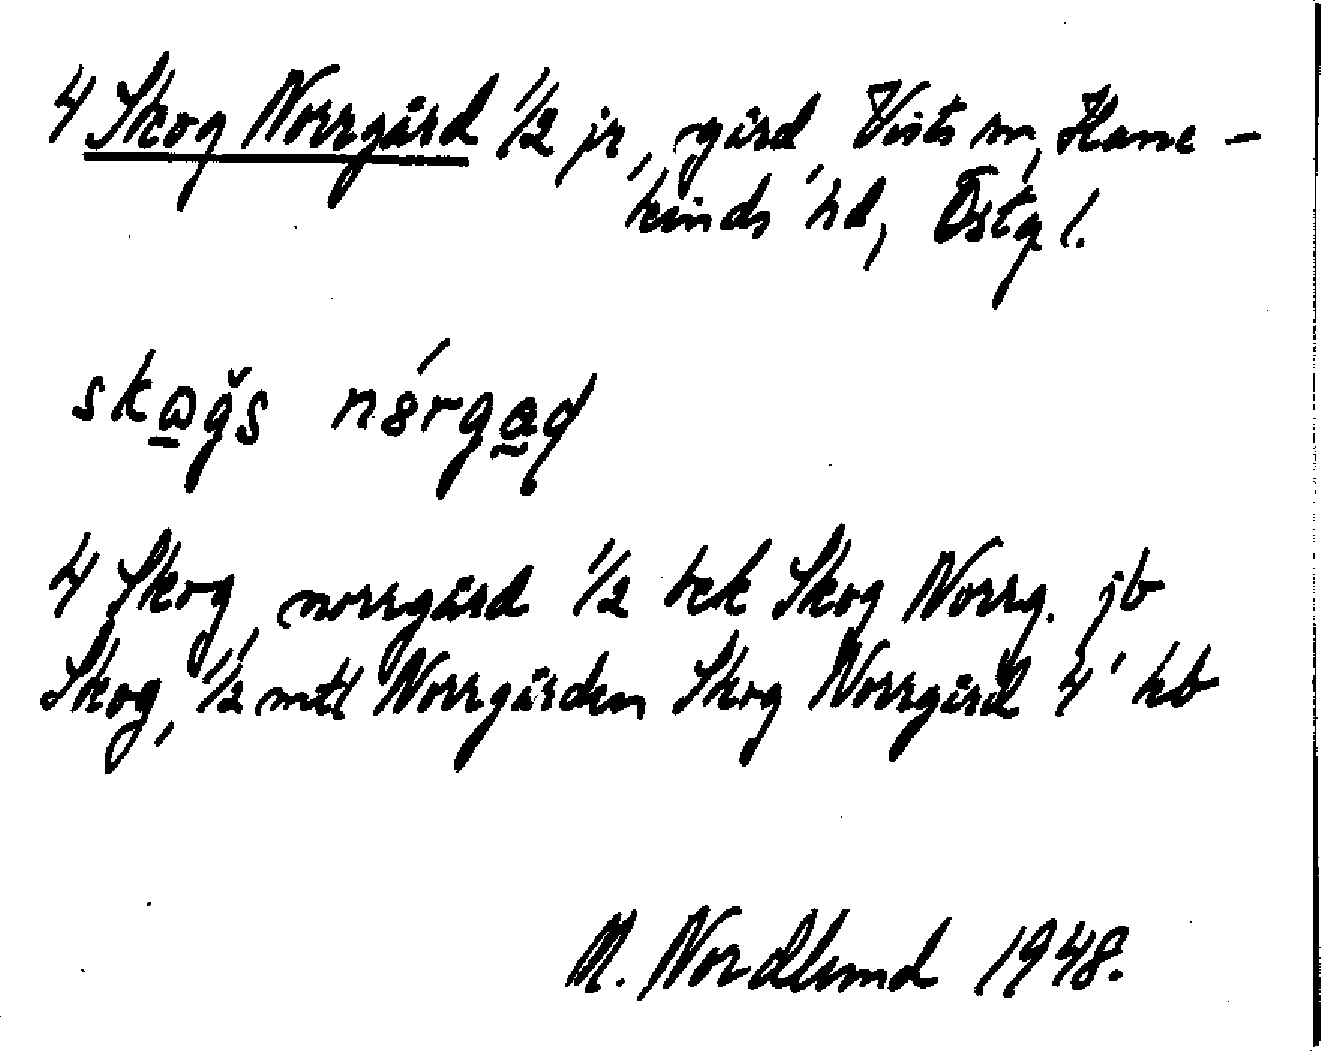 4 Skog Norrgård 1/2 jr, gård, Vists sn, Hane-
kinds hd, Östgl.
skωǧs nórgad
4 Skog, norrgård 1/2 bek Skog Norrg. jb
Skog, 1/2 mtl Norrgården Skog Norrgård 4' hb
M. Nordlund 1948.